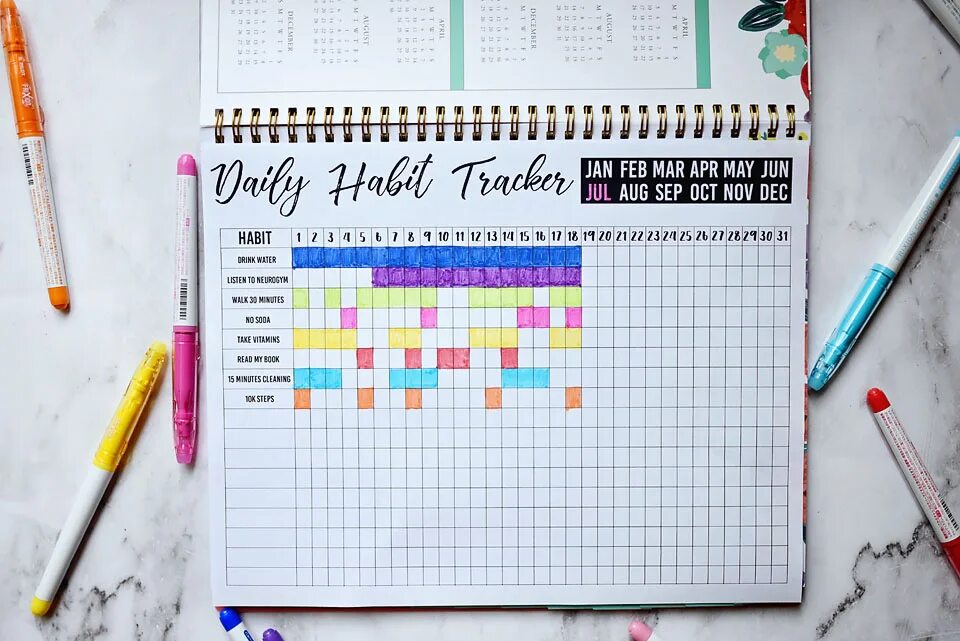 DECEMBER
AUGUST
APRIL
DECEMBER
AUGUST
APRIL
Daily Habit Tracker
JAN FEB MAR APR MAY JUN
JUL AUG SEP OCT NOV DEC
HABIT 1 2 3 4 5 6 7 8 9 10 11 12 13 14 15 16 17 18 19 20 21 22 23 24 25 26 27 28 29 30 31
DRINK WATER
LISTEN TO NEUROGYM
WALK 30 MINUTES
NO SODA
TAKE VITAMINS
READ MY BOOK
15 MINUTES CLEANING
10K STEPS